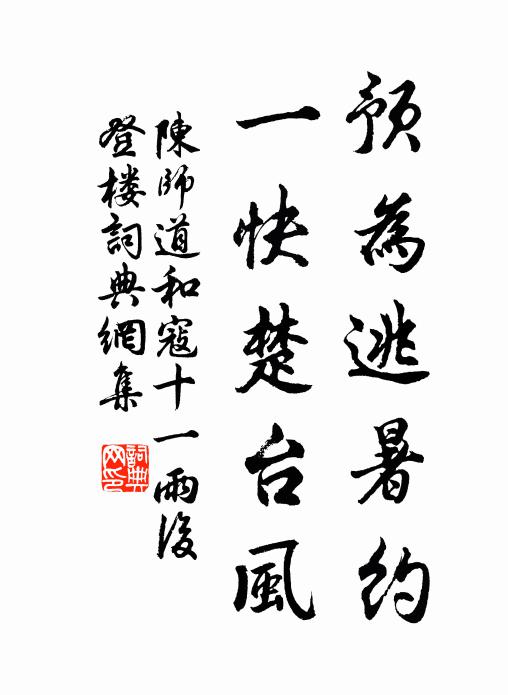 預為逃暑約
一快楚台風
陳師道和寇十一雨後
登楼詞典網集
詞典网印